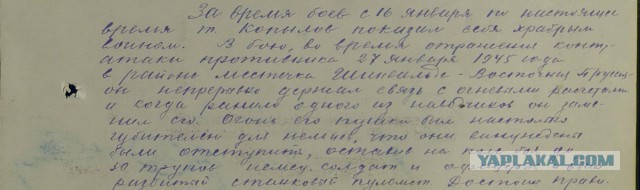 За время боев с 16 января по настоящее
время т. Копылов показал себя храбрым
воином. В бою, во время отражения контр-
атаки противника 27 января 1945 года
в районе местечка Восточная Прусс.
он непрерывно держал связь с огневыми расчетами
и когда ранило одного из наводчиков он заме-
нил его. Огонь его пушки был настолько
губителен для немцев, что они
были отступить, оставив на поле боя до
30 трупов немец. солдат и
разбитый станковый пулемет. Достоин прави-
YAPLAKAL.COM